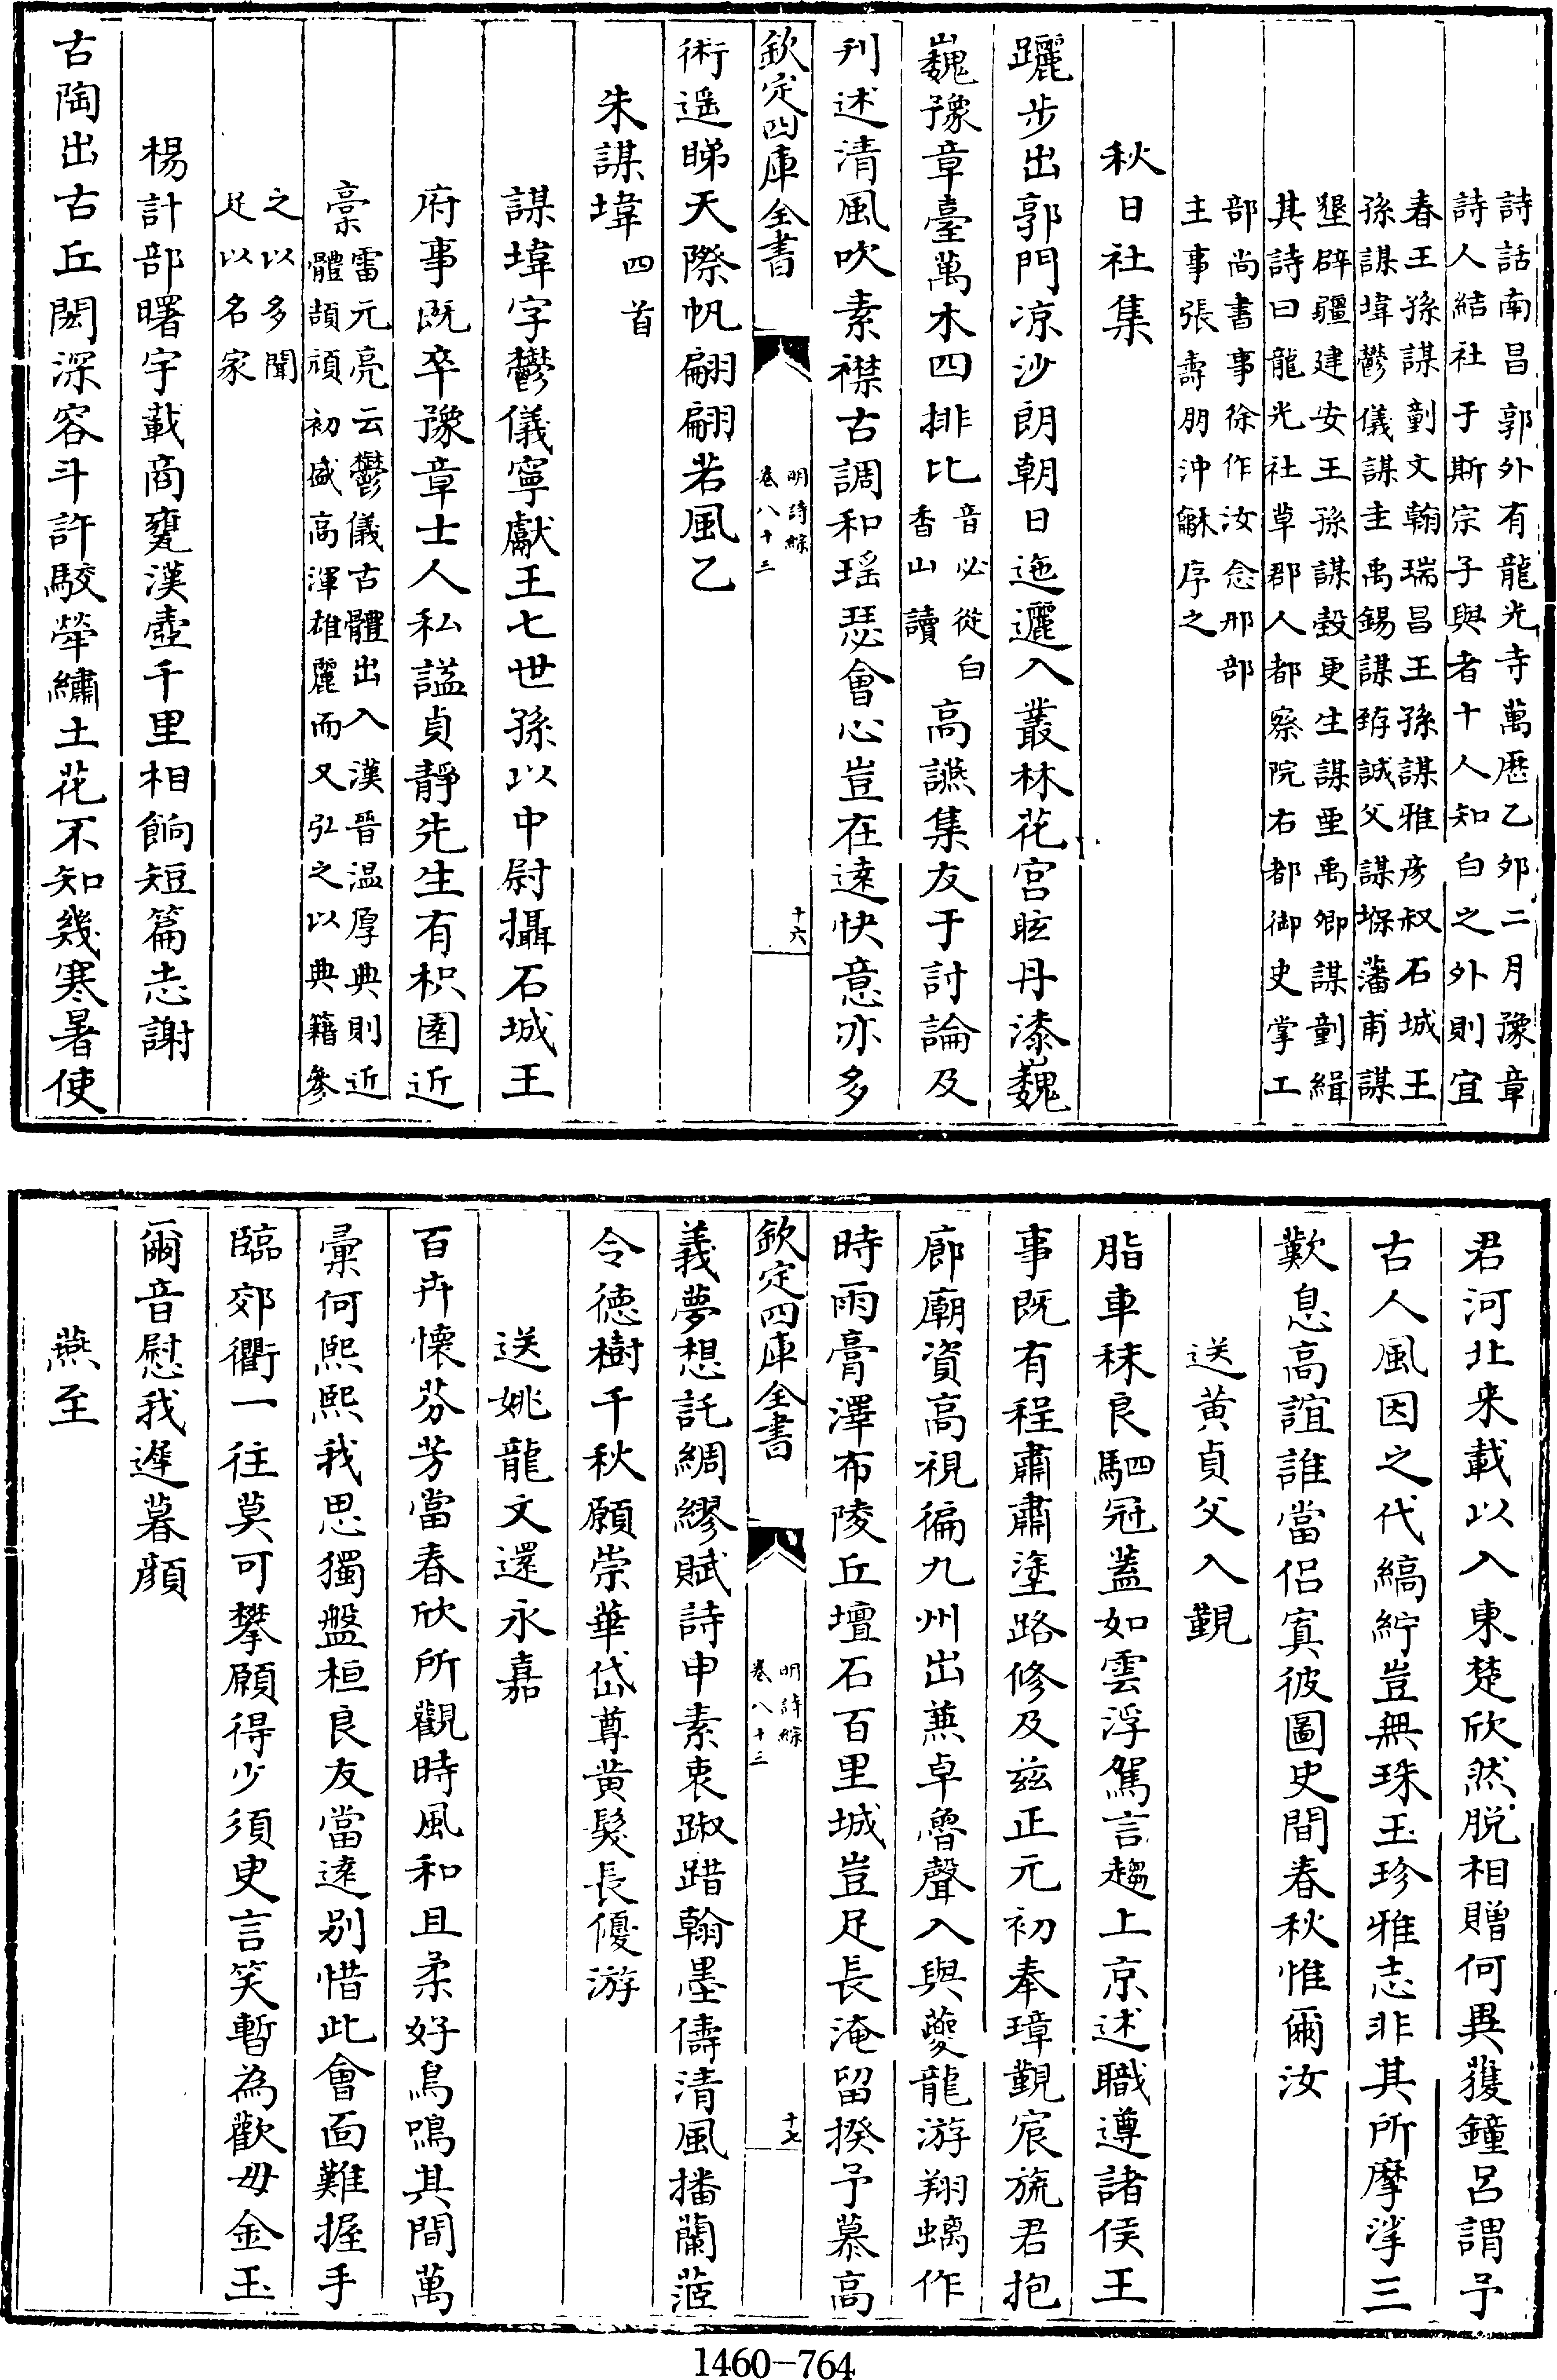 詩話南昌郭外有龍光寺萬歷乙夘二月豫章
詩人結社于斯宗子與者十人知白之外則宜
春王孫謀劃文翰瑞昌王孫謀雅彦叔石城王
孫謀㙔鬱儀謀圭禹錫謀㙉誠父謀㙅藩甫謀
墾辟疆建安王孫謀㲄更生謀垔禹卿謀劃緝
其詩曰龍光社草郡人都察院右都御史掌工
部尚書事徐作汝念邢部
主事張壽朋沖龢序之
秋日社集
躧步出郭門凉沙朗朝日迤邐入叢林花宫眩丹漆巍
巍豫章臺萬木四排比音必從白香山讀高讌集友于討論及
刋述清風吹素襟古調和瑶瑟㑹心豈在逺快意亦多
欽定四庫全書
明詩綜
卷八十三
十六
術遥睇天際帆翩翩若風乙
朱謀㙔四首
謀㙔字鬱儀寧獻王七世孫以中尉攝石城王
府事既卒豫章士人私謚貞靜先生有枳園近
藳雷元亮云鬱儀古體出入漢晉温厚典則近
體頡頏初盛高渾雄麗而又弘之以典籍參
之以多聞
足以名家
楊計部曙宇載商甕漢壺千里相餉短篇志謝
古陶出古丘閎深容斗許駮犖繡土花不知幾寒暑使
君河北来載以入東楚欣然脱相贈何異獲鐘呂謂予
古人風因之代縞紵豈無珠玉珍雅志非其所摩挲三
歎息高誼誰當侣寘彼圖史間春秋惟爾汝
送黄貞父入覲
脂車秣良駟冠蓋如雲浮駕言趨上京述職遵諸侯王
事既有程肅肅塗路修及兹正元初奉璋覲宸旒君抱
廊廟資高視徧九州出蕪卓魯聲入與夔龍游翔螭作
時雨膏澤布陵丘壇石百里城豈足長淹留揆予慕高
欽定四庫全書
明詩綜
卷八十三
十七
義夢想託綢繆賦詩申素衷踧踖翰墨儔清風播蘭蒞
令德樹千秋願崇華岱尊黄髮長優游
送姚龍文還永嘉
百卉懷芬芳當春欣所觀時風和且柔好鳥鳴其間萬
彚何熙熙我思獨盤桓良友當逺别惜此㑹面難握手
臨郊衢一往莫可攀願得少須臾言笑暫為歡毋金玉
爾音慰我遲暮顔
燕至
1460-764